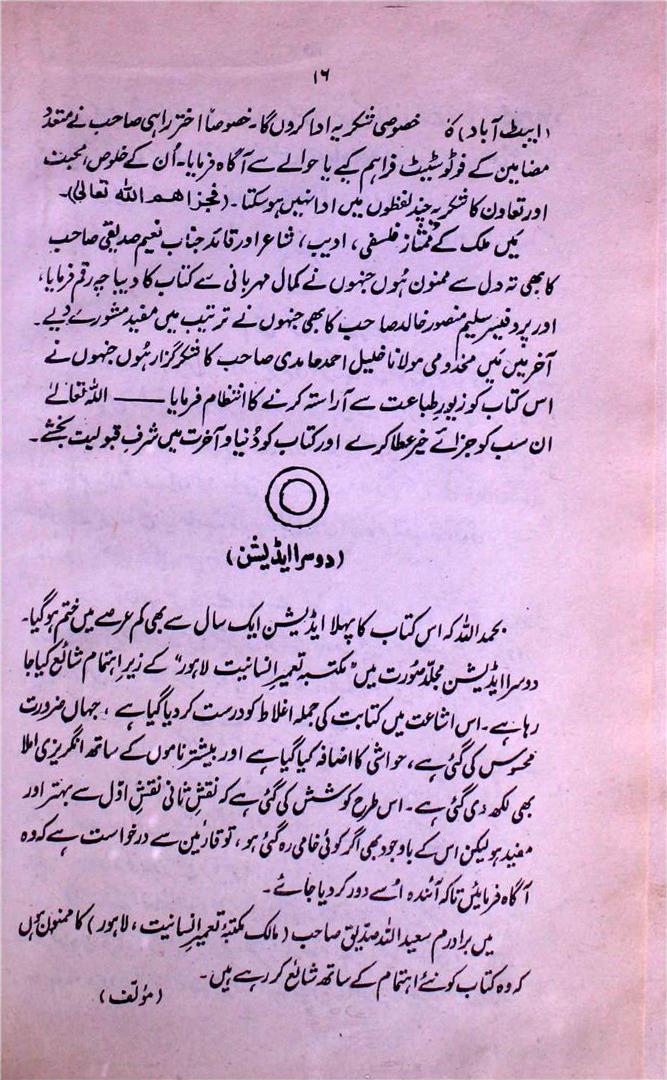 ۱۶
(ایبٹ آباد) کا خصوصی شکریہ ادا کروں گا۔ خصوصاً اختر راہی صاحب نے متعدد
مضامین کے فوٹو سٹیٹ فراہم کیے یا حوالے سے آگاہ فرمایا۔ اُن کے خلوص، محبت
اور تعاون کا شکریہ چند لفظوں میں ادا نہیں ہو سکتا۔ (فجزاھم اللہ تعالیٰ)۔
میں ملک کے ممتاز فلسفی، ادیب، شاعر اور قائد جناب نعیم صدیقی صاحب
کا بھی تہ دل سے ممنون ہُوں جنہوں نے کمال مہربانی سے کتاب کا دیباچہ رقم فرمایا،
اور پروفیسر سلیم منصور خالد صاحب کا بھی جنہوں نے ترتیب میں مفید مشورے دیے۔
آخر میں مَیں مخدومی مولانا خلیل احمد حامدی صاحب کا شکر گزار ہُوں جنہوں نے
اس کتاب کو زیورِ طباعت سے آراستہ کرنے کا انتظام فرمایا —— اللہ تعالیٰ
ان سب کو جزائے خیر عطا کرے اور کتاب کو دُنیا و آخرت میں شرفِ قبولیت بخشے۔
(دوسرا ایڈیشن)
بحمد اللہ کہ اس کتاب کا پہلا ایڈیشن ایک سال سے بھی کم عرصے میں ختم ہو گیا۔
دوسرا ایڈیشن مجلّد صُورت میں "مکتبہ تعمیرِ انسانیت لاہور" کے زیرِ اہتمام شائع کیا جا
رہا ہے۔ اس اشاعت میں کتابت کی جملہ اغلاط کو درست کر دیا گیا ہے، جہاں ضرورت
محسوس کی گئی ہے، حواشی کا اضافہ کیا گیا ہے اور بیشتر ناموں کے ساتھ انگریزی املا
بھی لکھ دی گئی ہے۔ اس طرح کوشش کی گئی ہے کہ نقشِ ثانی نقشِ اوّل سے بہتر اور
مفید ہو لیکن اس کے باوجود بھی اگر کوئی خامی رہ گئی ہو، تو قارئین سے درخواست ہے کہ وہ
آگاہ فرمائیں تاکہ آئندہ اُسے دور کر دیا جائے۔
میں برادرم سعید اللہ صدّیق صاحب (مالک مکتبۂ تعمیرِ انسانیت، لاہور) کا ممنون ہوں
کہ وہ کتاب کو نئے اہتمام کے ساتھ شائع کر رہے ہیں۔
(مؤلف)